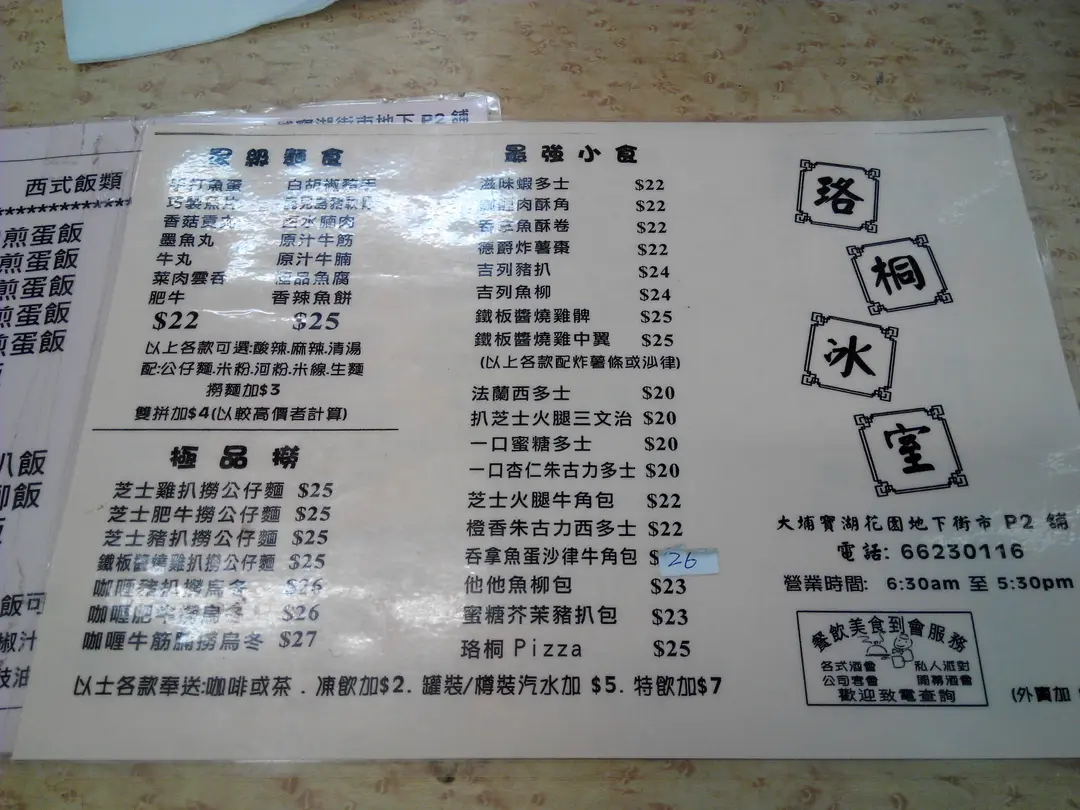 寶湖街市地下 P2 舖
西式飯類
煎蛋飯
煎蛋飯
煎蛋飯
煎蛋飯
煎蛋飯
扒飯
柳飯
飯可
椒汁
豉油
星級麵食
魚蛋 白胡椒豬手
巧製魚片
香菇貢丸 水腩肉
墨魚丸 原汁牛筋
牛丸 原汁牛腩
菜肉雲吞 極品魚腐
肥牛 香辣魚餅
$22 $25
以上各款可選:酸辣.麻辣.清湯
配:公仔麵.米粉.河粉.米線.生麵
撈麵加$3
雙拼加$4(以較高價者計算)
極品撈
芝士雞扒撈公仔麵 $25
芝士肥牛撈公仔麵 $25
芝士豬扒撈公仔麵 $25
鐵板醬燒雞扒撈公仔麵 $25
咖喱豬扒撈烏冬 $26
咖喱肥牛撈烏冬 $26
咖喱牛筋腩撈烏冬 $27
最強小食
滋味蝦多士 $22
肉酥角 $22
吞拿魚酥卷 $22
德爵炸薯棗 $22
吉列豬扒 $24
吉列魚柳 $24
鐵板醬燒雞髀 $25
鐵板醬燒雞中翼 $25
(以上各款配炸薯條或沙律)
法蘭西多士 $20
扒芝士火腿三文治 $20
一口蜜糖多士 $20
一口杏仁朱古力多士 $20
芝士火腿牛角包 $22
橙香朱古力西多士 $22
吞拿魚蛋沙律牛角包 $26
他他魚柳包 $23
蜜糖芥茉豬扒包 $23
珞桐 Pizza $25
以士各款奉送:咖啡或茶 . 凍飲加$2. 罐裝/樽裝汽水加 $5. 特飲加$7
珞
桐
冰
室
大埔寶湖花園地下街市 P2 舖
電話: 66230116
營業時間: 6:30am 至 5:30pm
餐飲美食到會服務
各式酒會 私人派對
公司客會 開幕酒會
歡迎致電查詢
(外賣加